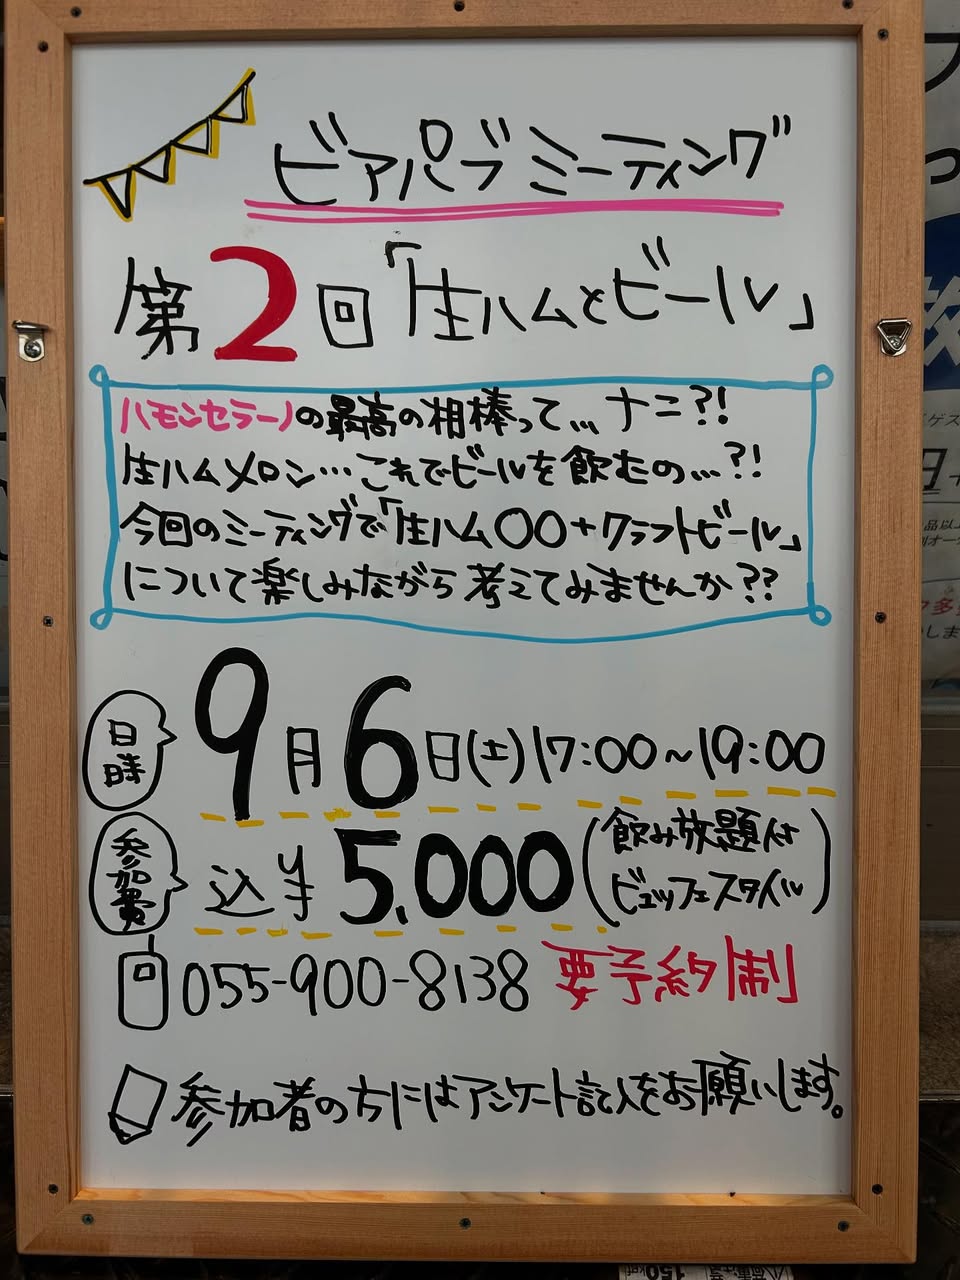 ビアパブミーティング
第2回「生ハムとビール」
ハモンセラーノの最高の相棒って… ナニ?!
生ハムメロン…これでビールを飲むの…?!
今回のミーティングで「生ハム〇〇+クラフトビール」
について楽しみながら考えてみませんか??
日時
9月6日(土)17:00~19:00
参加費
込¥5.000(飲み放題付
ビュッフェスタイル)
055-900-8138 要予約制
参加者の方にはアンケート記入をお願いします。